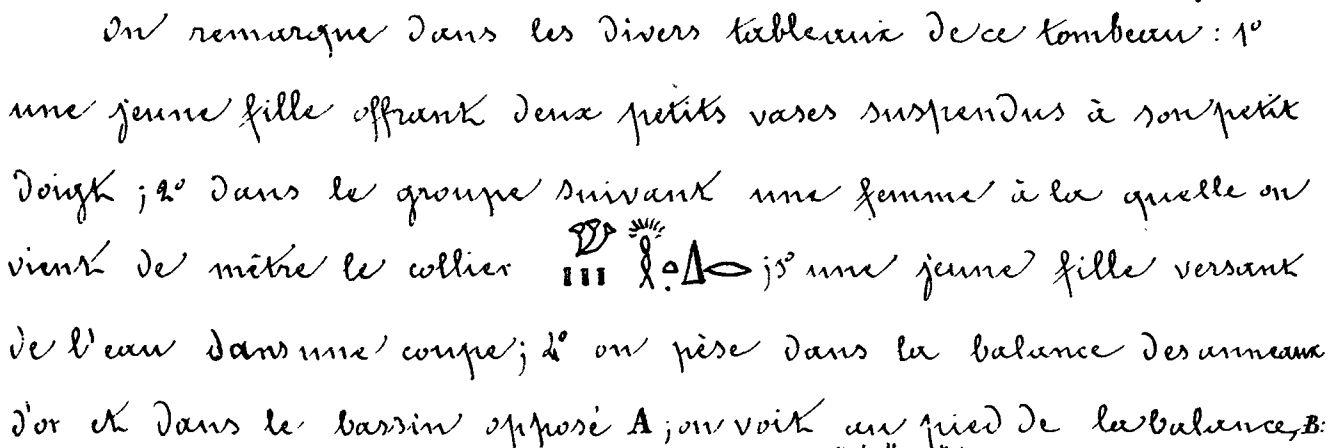 On remarque dans les divers tableaux de ce tombeau : 1°
une jeune fille offrant deux petits vases suspendus à son petit
doigt ; 2° dans le groupe suivant une femme à la quelle on
vient de mêtre le collier ; 3° une jeune fille versant
de l'eau dans une coupe ; 4° on pèse dans la balance des anneaux
d'or et dans le bassin opposé A ; on voit au pied de la balance, B: